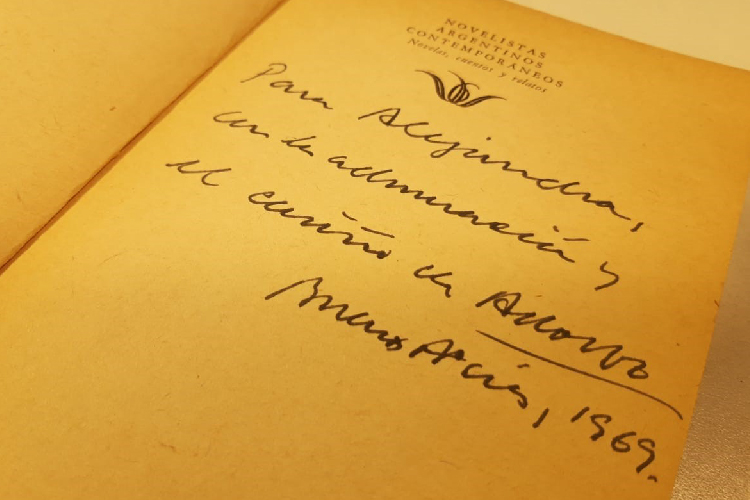 NOVELISTAS
ARGENTINOS
CONTEMPORÁNEOS
Novelas, cuentos y relatos
Para Alejandra,
con la admiración y
el cariño de Adolfo
Buenos Aires, 1969.